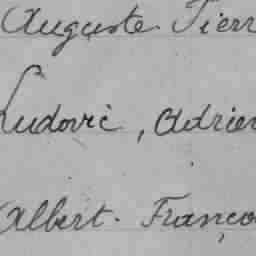 Auguste Pierr
Ludovic, Adrien
Albert. Franço